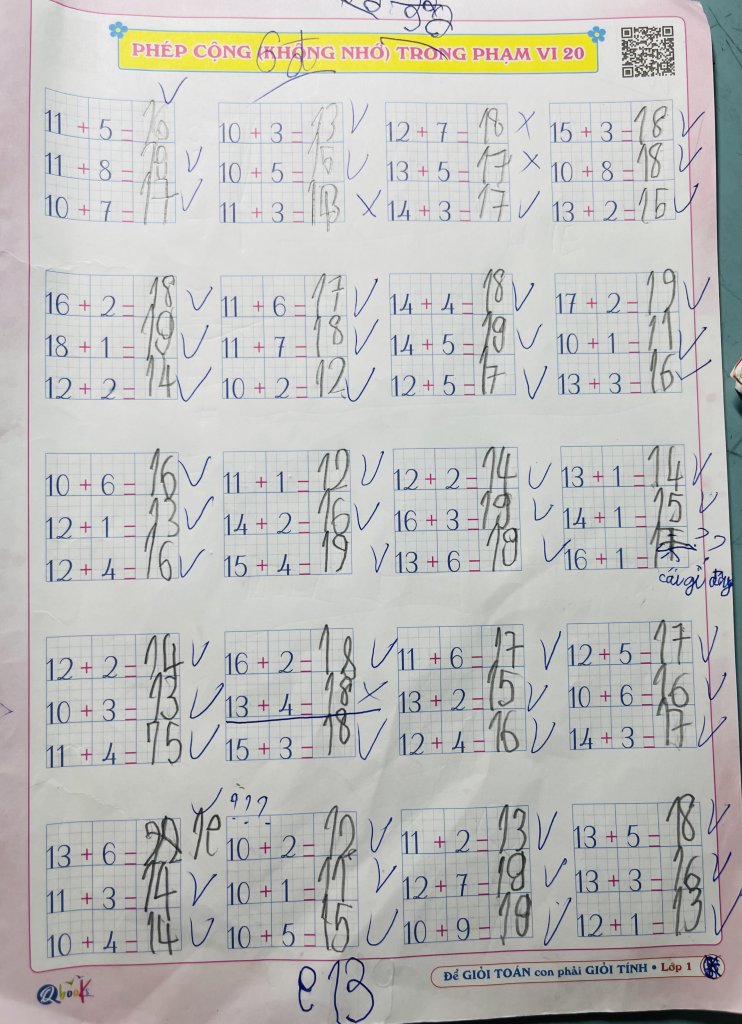 PHÉP CỘNG (KHÔNG NHỚ) TRONG PHẠM VI 20
6đ
11 + 5 = 16 10 + 3 = 13 12 + 7 = 18 15 + 3 = 18
11 + 8 = 19 10 + 5 = 15 13 + 5 = 17 10 + 8 = 18
10 + 7 = 17 11 + 3 = 14 + 3 = 17 13 + 2 = 15
16 + 2 = 18 11 + 6 = 17 14 + 4 = 18 17 + 2 = 19
18 + 1 = 19 11 + 7 = 18 14 + 5 = 19 10 + 1 = 11
12 + 2 = 14 10 + 2 = 12 12 + 5 = 17 13 + 3 = 16
10 + 6 = 16 11 + 1 = 12 12 + 2 = 14 13 + 1 = 14
12 + 1 = 13 14 + 2 = 16 16 + 3 = 19 14 + 1 = 15
12 + 4 = 16 15 + 4 = 19 13 + 6 = 19 16 + 1 = ??
cái gì đây
12 + 2 = 14 16 + 2 = 18 11 + 6 = 17 12 + 5 = 17
10 + 3 = 13 13 + 4 = 18 13 + 2 = 15 10 + 6 = 16
11 + 4 = 15 15 + 3 = 18 12 + 4 = 16 14 + 3 = 17
???
13 + 6 = 10 + 2 = 12 11 + 2 = 13 13 + 5 = 18
11 + 3 = 14 10 + 1 = 11 12 + 7 = 19 13 + 3 = 16
10 + 4 = 14 10 + 5 = 15 10 + 9 = 19 12 + 1 = 13
Để GIỎI TOÁN con phải GIỎI TÍNH • Lớp 1
Qbooks
e 13